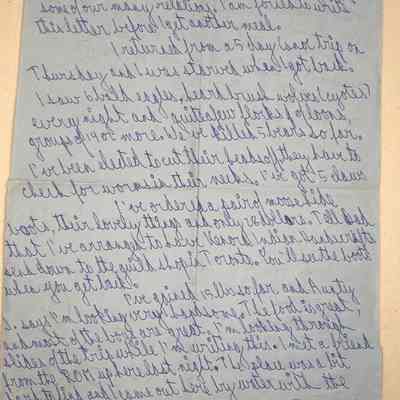 some of our many relations. I am
this letter before I get another meal.
I returned from a 5 day canoe trip on
Thursday and I was starved when I got back.
I saw 6 bald eagles, heard brush wolves (coyotes)
every night and quite a few flocks of loons,
groups of 9 or more. We've killed 5 bears so far.
I've been elected to cut their heads off they have to
check for worms in their necks. I've got 5 claws
I've ordered a pair of moosehide
boots, their lovely things and only 12 dollars. Tell dad
that I've arranged to have Indian Handicrafts
sent down to the guild shop in Toronto. You'll see the boots
when you get back.
I've gained 12 lbs so far and Aunty
J. says I'm looking very handsome. The food is great,
and most of the boys are great. I'm looking through
slides of the trip while I'm writing this. I met a friend
from the ROM up here last night. The place was a bit
and I came out here by water with the